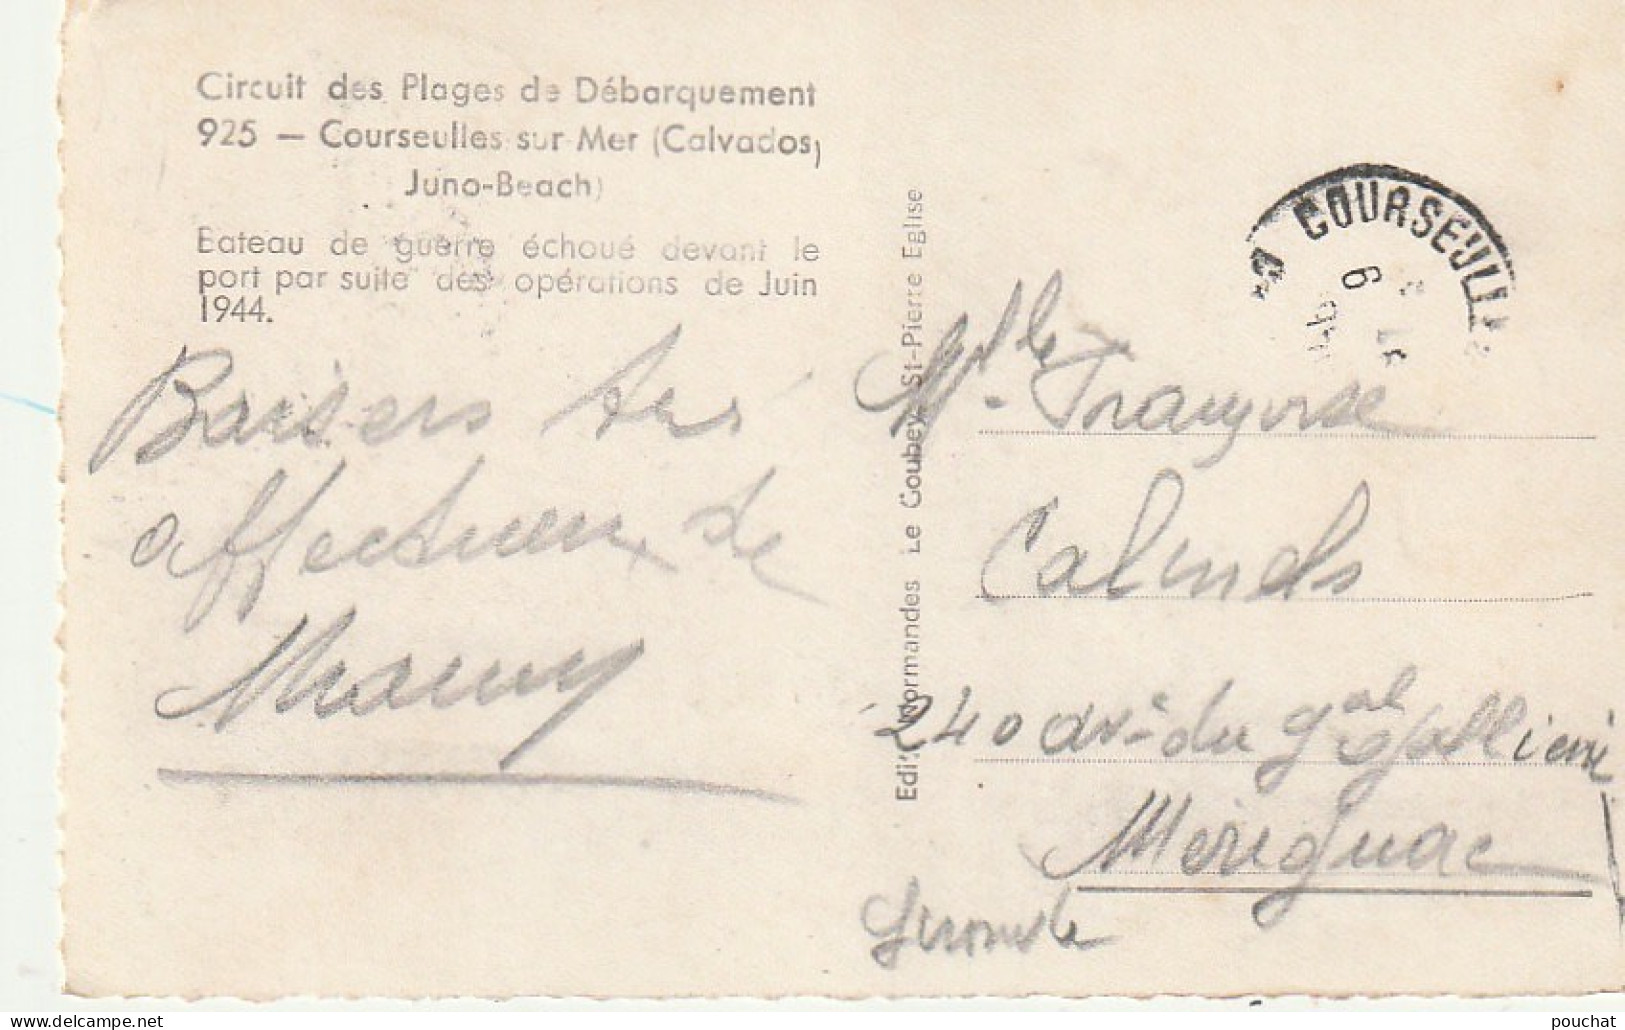 Circuit des Plages de Débarquement
925 — Courseulles sur Mer (Calvados)
Juno-Beach)
Bateau de guerre échoué devant le
port par suite des opérations de Juin
1944.
Baisers très
affectueux de
Mamy
Normandes Le Goubey St-Pierre Eglise
COURSEULL
6
Mlle Françoise
Calmels
240 ave du Gal Gallieni
Merignac
Gironde
pouchat